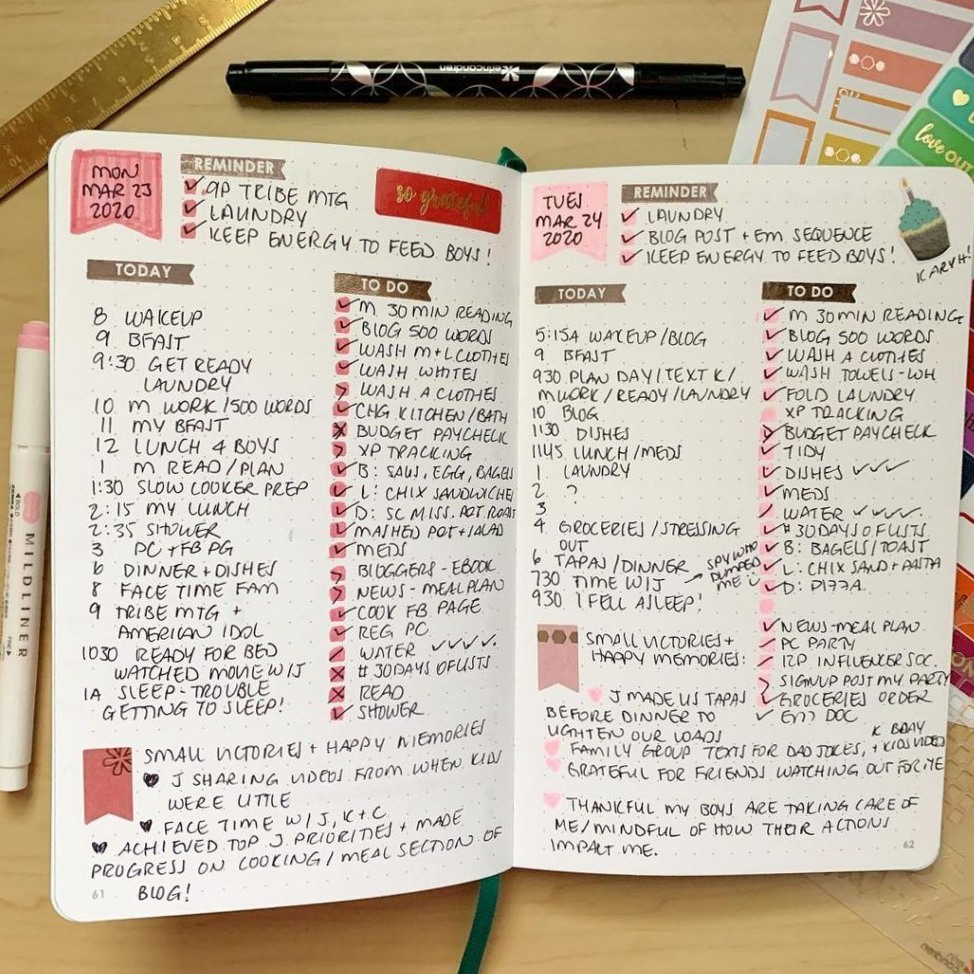 erincondren
MILDLINER
MON
MAR 23
2020
REMINDER
9P TRIBE MTG
LAUNDRY
KEEP ENERGY TO FEED BOYS!
so grateful
TODAY
8 WAKEUP
9 BFAST
9:30 GET READY
LAUNDRY
10 M WORK/500 WORDS
11 MY BFAST
12 LUNCH 4 BOYS
1 M READ/PLAN
1:30 SLOW COOKER PREP
2:15 MY LUNCH
2:35 SHOWER
3 PC + FB PG
6 DINNER + DISHES
8 FACE TIME FAM
9 TRIBE MTG +
AMERICAN IDOL
1030 READY FOR BED
WATCHED MOVIE W/J
1A SLEEP - TROUBLE
GETTING TO SLEEP!
TO DO
M 30 MIN READING
BLOG 500 WORDS
WASH M+L CLOTHES
WASH WHITES
WASH A CLOTHES
CHG KITCHEN/BATH
BUDGET PAYCHECK
XP TRACKING
B: SAUS, EGG, BAGELS
L: CHIX SANDWICHES
D: SC MISS. POT ROAST
MASHED POT + SALAD
MEDS
BLOGGERS - EBOOK
NEWS - MEAL PLAN
COOK FB PAGE
REG PC
WATER ✓✓✓✓
#30DAYSOFLISTS
READ
SHOWER
SMALL VICTORIES + HAPPY MEMORIES
J SHARING VIDEOS FROM WHEN KIDS
WERE LITTLE
FACE TIME W/J, K+C
ACHIEVED TOP J PRIORITIES + MADE
PROGRESS ON COOKING/MEAL SECTION OF
BLOG!
61
TUES
MAR 24
2020
REMINDER
LAUNDRY
BLOG POST + EM SEQUENCE
KEEP ENERGY TO FEED BOYS!
TODAY
5:15A WAKEUP/BLOG
9 BFAST
930 PLAN DAY/TEXT K/
M WORK/READY/LAUNDRY
10 BLOG
1130 DISHES
1145 LUNCH/MEDS
1 LAUNDRY
2 ?
3
4 GROCERIES/STRESSING
OUT
6 TAPAS/DINNER
730 TIME W/J → SPY WHO
DUMPED
ME
930 I FELL ASLEEP!
TO DO
M 30 MIN READING
BLOG 500 WORDS
WASH A CLOTHES
WASH TOWELS - WH
FOLD LAUNDRY
XP TRACKING
BUDGET PAYCHECK
TIDY
DISHES ✓✓✓
MEDS
WATER ✓✓✓✓
#30DAYSOFLISTS
B: BAGELS/TOAST
L: CHIX SAND + PASTA
D: PIZZA
NEWS - MEAL PLAN
PC PARTY
INFLUENCER SOC.
SIGNUP POST MY PARTY
GROCERIES ORDER
DOC
SMALL VICTORIES +
HAPPY MEMORIES:
J MADE US TAPAS
BEFORE DINNER TO
LIGHTEN OUR LOADS
K BDAY
FAMILY GROUP TEXTS FOR DAD JOKES, + KIDS VIDEOS
GRATEFUL FOR FRIENDS WATCHING OUT FOR ME
THANKFUL MY BOYS ARE TAKING CARE OF
ME/MINDFUL OF HOW THEIR ACTIONS
IMPACT ME.
62